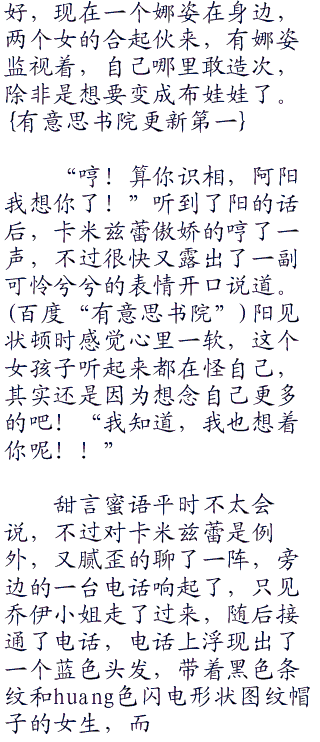 好，现在一个娜姿在身边，
两个女的合起伙来，有娜姿
监视着，自己哪里敢造次，
除非是想要变成布娃娃了。
{有意思书院更新第一}
“哼！算你识相，阿阳
我想你了！”听到了阳的话
后，卡米兹蕾傲娇的哼了一
声，不过很快又露出了一副
可怜兮兮的表情开口说道。
(百度“有意思书院”)阳见
状顿时感觉心里一软，这个
女孩子听起来都在怪自己，
其实还是因为想念自己更多
的吧！“我知道，我也想着
你呢！！”
甜言蜜语平时不太会
说，不过对卡米兹蕾是例
外，又腻歪的聊了一阵，旁
边的一台电话响起了，只见
乔伊小姐走了过来，随后接
通了电话，电话上浮现出了
一个蓝色头发，带着黑色条
纹和huang色闪电形状图纹帽
子的女生，而